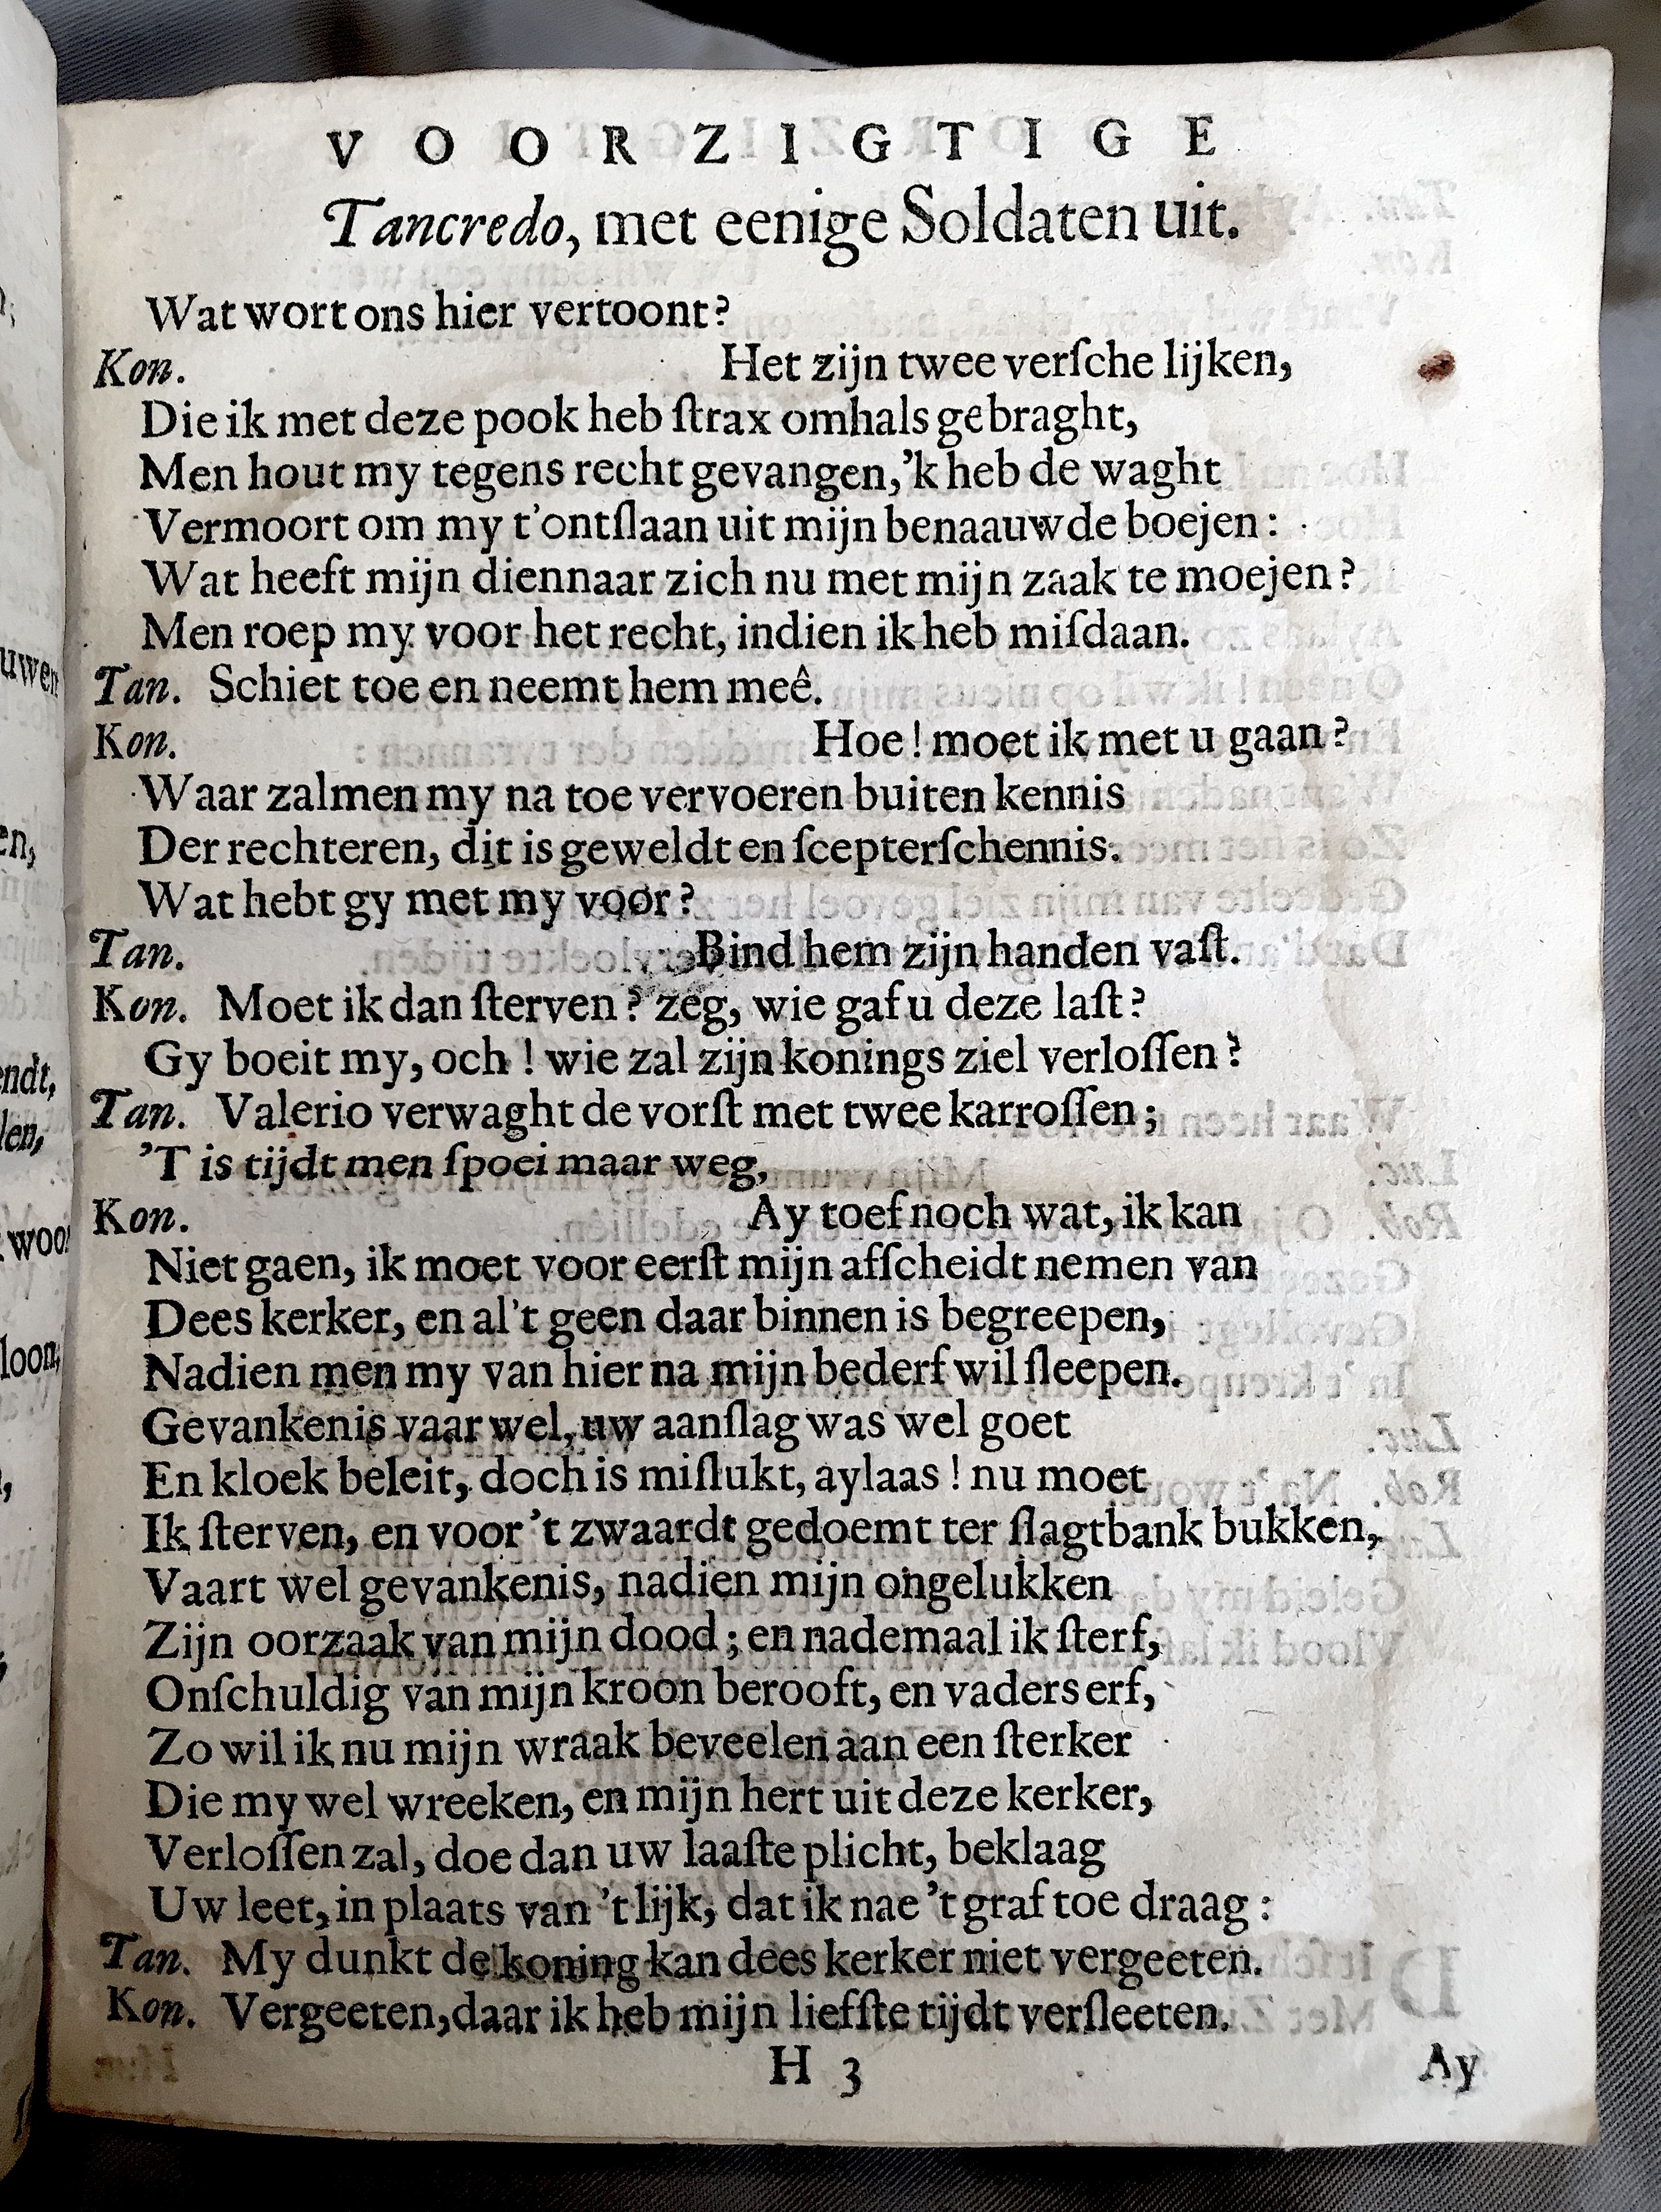 VOORZIGTIGE
Tancredo, met eenige Soldaten uit.
Wat wort ons hier vertoont?
Kon. Het zijn twee verſche lijken,
Die ik met deze pook heb ſtrax omhals gebraght,
Men hout my tegens recht gevangen, 'k heb de waght
Vermoort om my t'ontſlaan uit mijn benaauwde boejen:
Wat heeft mijn diennaar zich nu met mijn zaak te moejen?
Men roep my voor het recht, indien ik heb miſdaan.
Tan. Schiet toe en neemt hem meê.
Kon. Hoe! moet ik met u gaan?
Waar zalmen my na toe vervoeren buiten kennis
Der rechteren, dit is geweldt en ſcepterſchennis.
Wat hebt gy met my voor?
Tan. Bind hem zijn handen vaſt.
Kon. Moet ik dan ſterven? zeg, wie gaf u deze laſt?
Gy boeit my, och! wie zal zijn konings ziel verloſſen?
Tan. Valerio verwaght de vorſt met twee karroſſen;
'T is tijdt men ſpoei maar weg,
Kon. Ay toef noch wat, ik kan
Niet gaen, ik moet voor eerſt mijn afſcheidt nemen van
Dees kerker, en al't geen daar binnen is begreepen,
Nadien men my van hier na mijn bederf wil ſleepen.
Gevankenis vaar wel, uw aanſlag was wel goet
En kloek beleit, doch is miſlukt, aylaas! nu moet
Ik ſterven, en voor 't zwaardt gedoemt ter ſlagtbank bukken,
Vaart wel gevankenis, nadien mijn ongelukken
Zijn oorzaak van mijn dood; en nademaal ik ſterf,
Onſchuldig van mijn kroon berooft, en vaders erf,
Zo wil ik nu mijn wraak beveelen aan een ſterker
Die my wel wreeken, en mijn hert uit deze kerker,
Verloſſen zal, doe dan uw laaſte plicht, beklaag
Uw leet, in plaats van 't lijk, dat ik nae 't graf toe draag:
Tan. My dunkt de koning kan dees kerker niet vergeeten.
Kon. Vergeeten, daar ik heb mijn liefſte tijdt verſleeten.
H 3 Ay